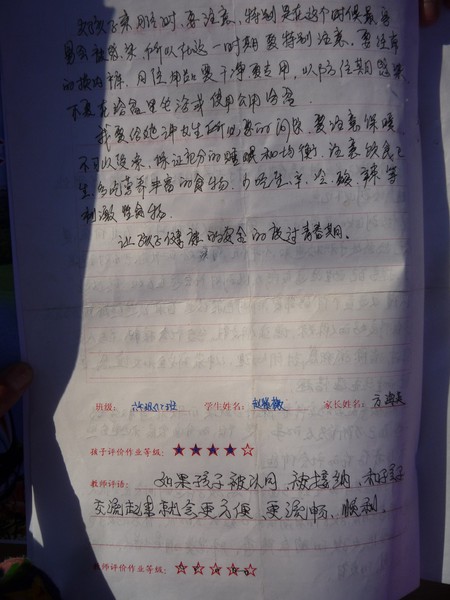 女孩子来月经时,要注意,特别是在这个时候最容
易会被感染,所以在这一时期要特别注意,要注意
的换内裤,用经用品要干净要专用,以防经期感染
不要在浴盆里生活或使用公用浴盆
我要给她讲卫生所必要的问题,要注意保暖
不可以受凉,保证充分的睡眠和均衡,注意饮食卫
生多吃营养丰富的食物,少吃生、辛、冷、酸、辣等
刺激性食物.
让孩子健康的安全的度过青春期.
班级: 学生姓名: 家长姓名:
孩子评价作业等级: ★★★★☆
教师评语: 如果孩子被认同、被接纳,和孩子
交流起来就会更方便、更流畅、顺利。
教师评价作业等级: ☆☆☆☆☆